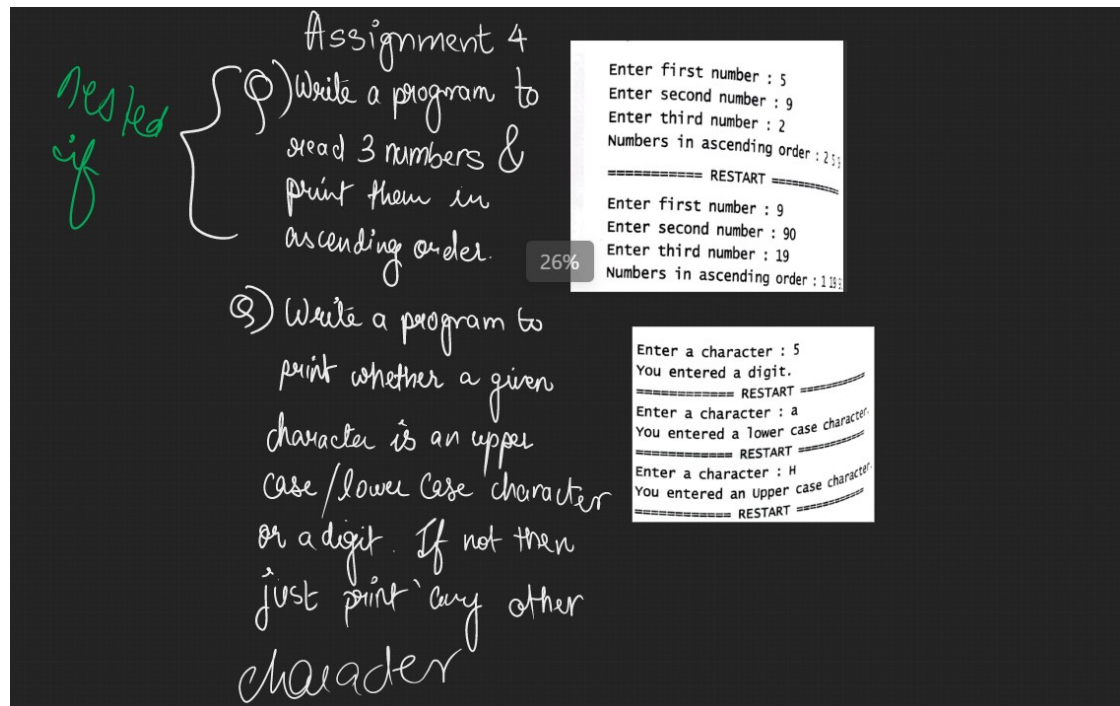 Assignment 4
nested
if
Q) Write a program to
read 3 numbers &
print them in
ascending order.
Enter first number : 5
Enter second number : 9
Enter third number : 2
Numbers in ascending order : 2 5 9
=========== RESTART ===========
Enter first number : 9
Enter second number : 90
Enter third number : 19
Numbers in ascending order :
26%
Q) Write a program to
print whether a given
character is an upper
case/lower case character
or a digit. If not then
just print any other
character
Enter a character : 5
You entered a digit.
============ RESTART ==========
Enter a character : a
You entered a lower case character.
============ RESTART ==========
Enter a character : H
You entered an Upper case character.
============ RESTART ==========